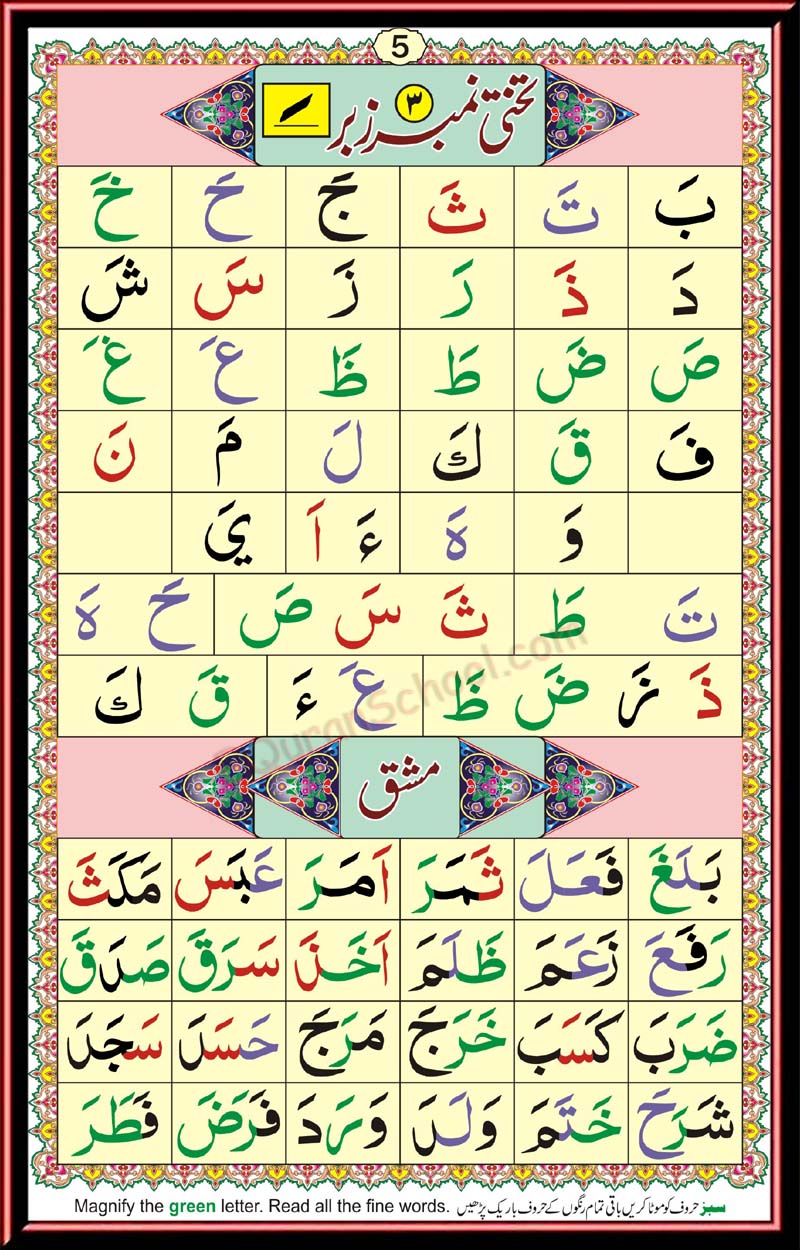 5
تختی نمبر ۳ زبر
بَ تَ ثَ جَ حَ خَ
دَ ذَ رَ زَ سَ شَ
صَ ضَ طَ ظَ عَ غَ
فَ قَ كَ لَ مَ نَ
وَ هَ ءَ اَ يَ
تَ طَ ثَ سَ صَ حَ هَ
ذَ زَ ضَ ظَ عَ ءَ قَ كَ
QuranSchool.com
مشق
بَلَغَ فَعَلَ ثَمَرَ اَمَرَ عَبَسَ مَكَثَ
رَفَعَ زَعَمَ ظَلَمَ اَخَذَ سَرَقَ صَدَقَ
ضَرَبَ كَسَبَ خَرَجَ مَرَجَ حَسَدَ سَجَدَ
شَرَحَ خَتَمَ وَلَدَ وَرَدَ فَرَضَ فَطَرَ
سبز حروف کو موٹا کریں باقی تمام رنگوں کے حروف باریک پڑھیں
Magnify the green letter. Read all the fine words.